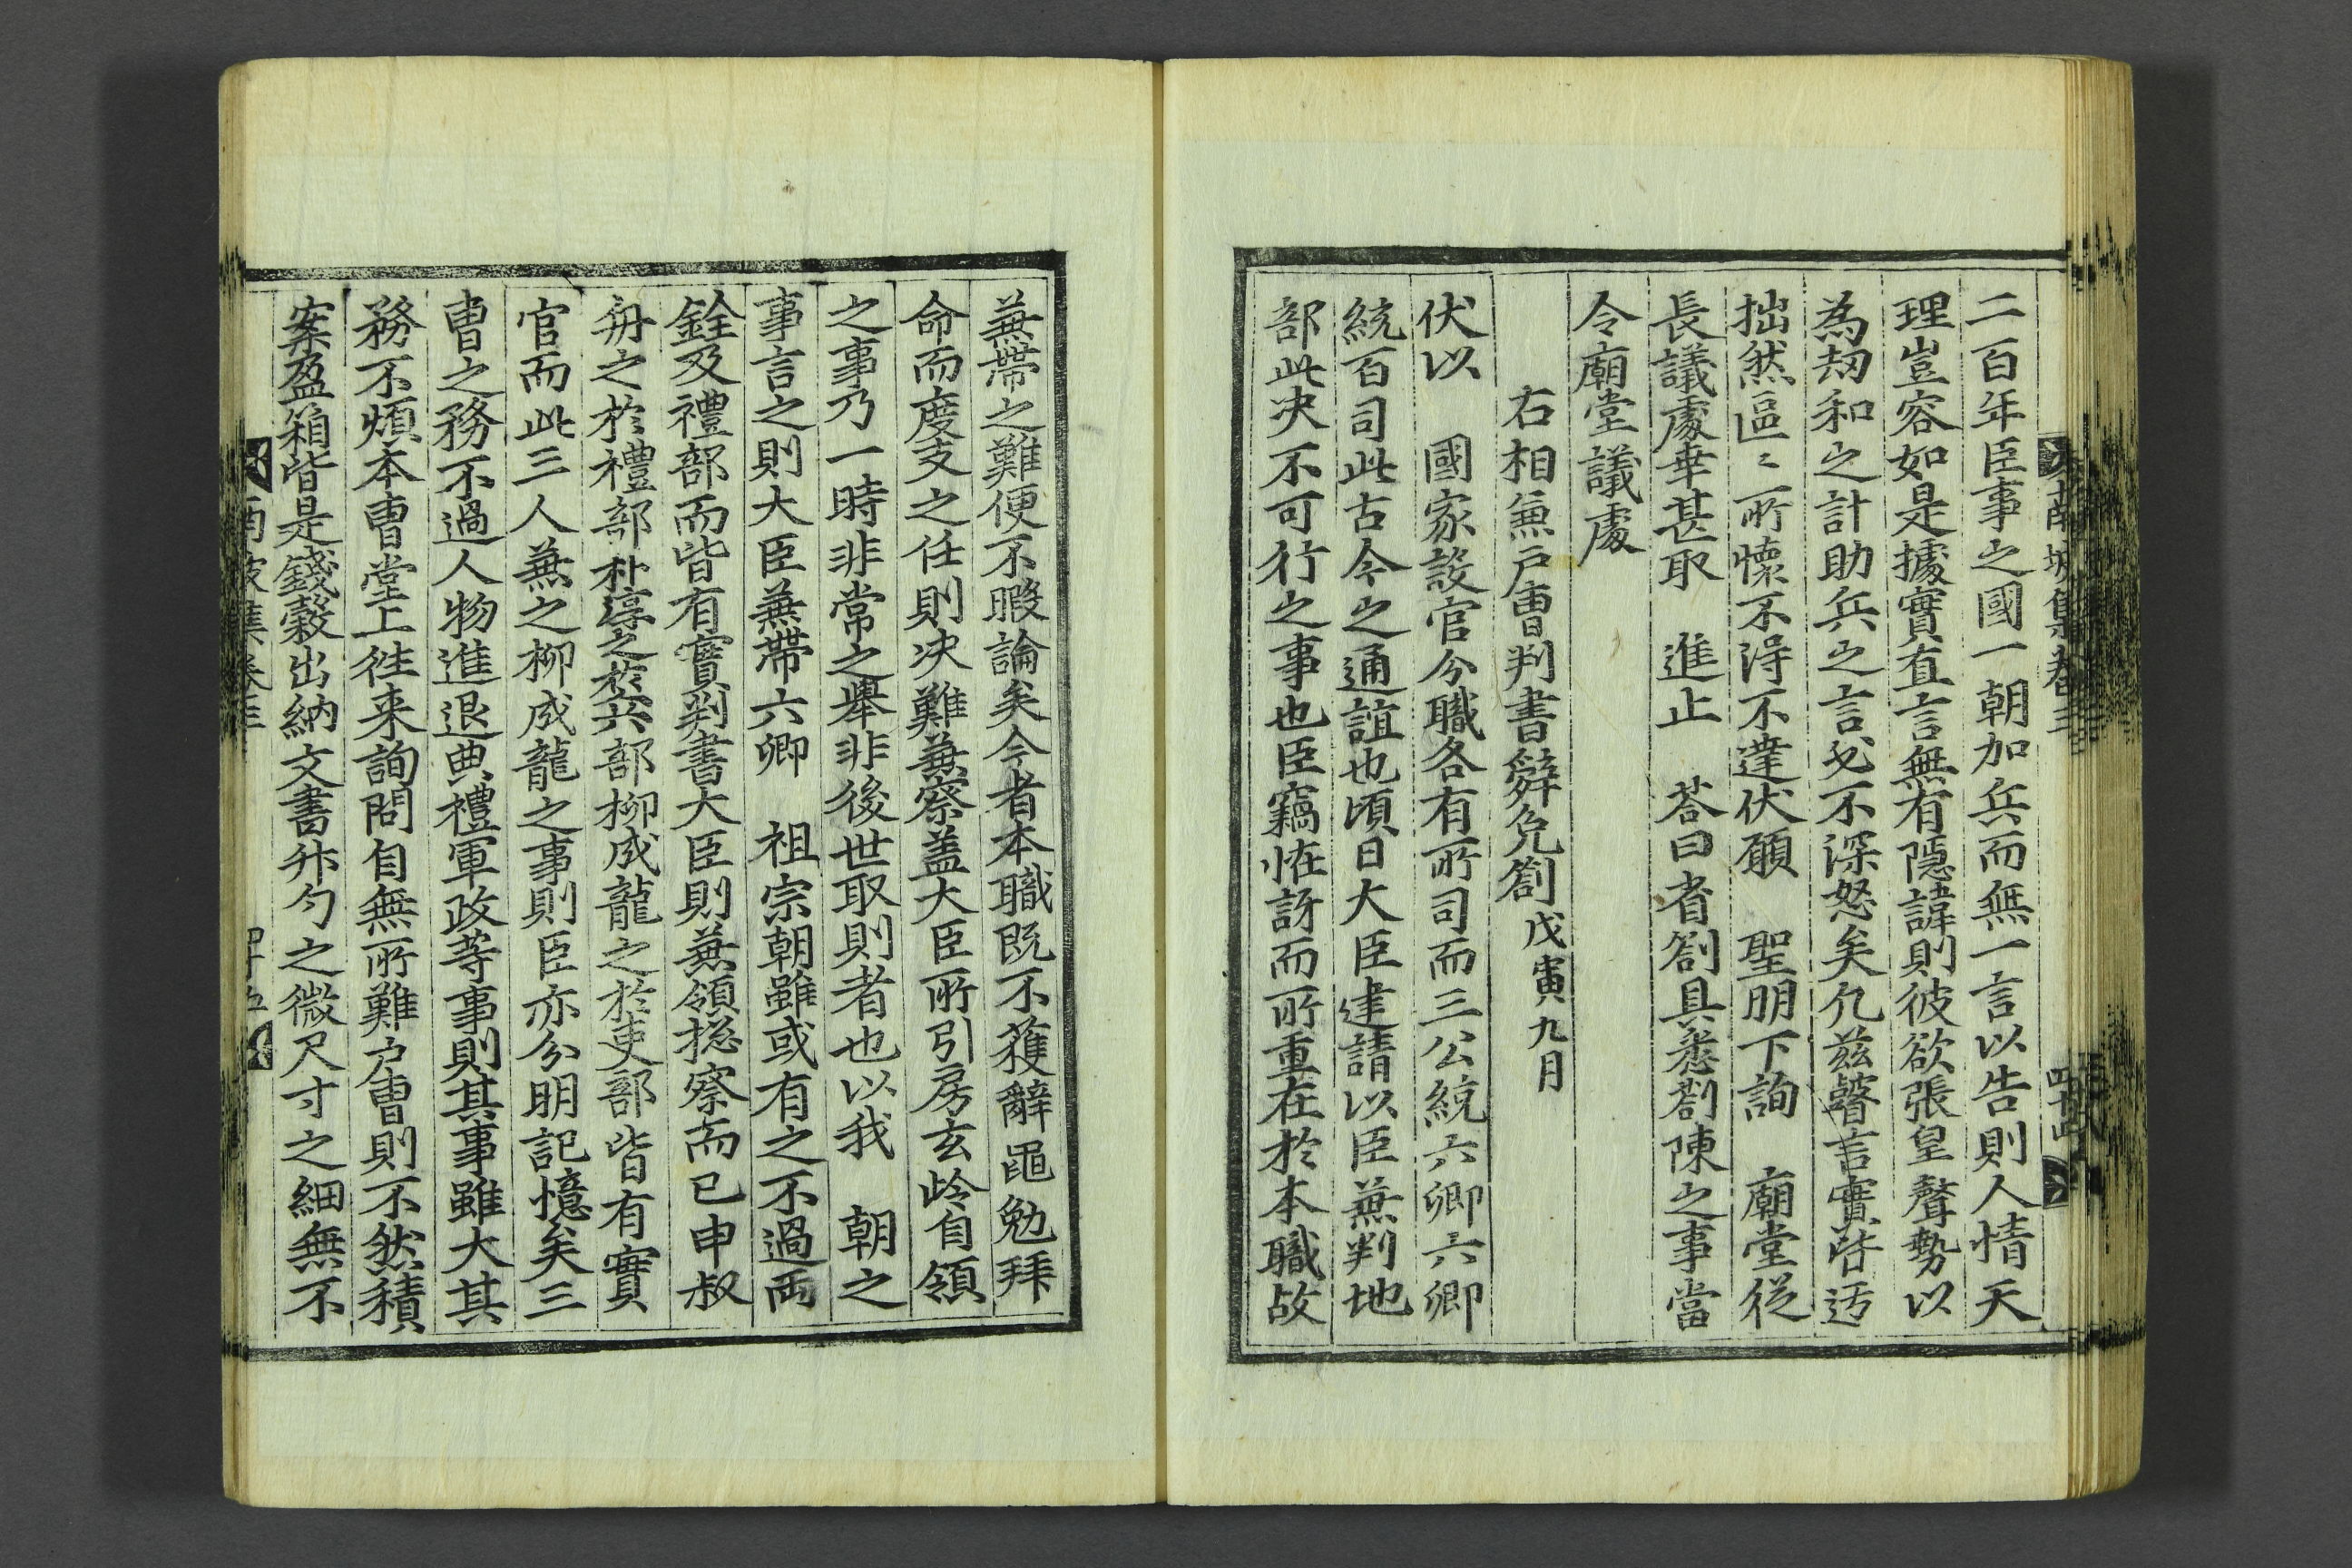 二百年臣事之國一朝加兵而無一言以告則人情天
理豈容如是據實直言無有隱諱則彼欲張皇聲勢以
為刼和之計助兵之言必不深怒矣凢茲瞽言實啓迃
拙然區〻所懷不得不達伏願 聖明下詢 廟堂從
長議處幸甚取 進止 答曰省劄具悉劄陳之事當
令廟堂議處
右相兼戶曹判書辭免劄戊寅九月
伏以 國家設官分職各有所司而三公統六卿六卿
統百司此古今之通誼也頃日大臣建請以臣兼判地
部此决不可行之事也臣竊恠訝而所重在於本職故
兼帶之難便不暇論矣今者本職旣不獲辭黽勉拜
命而度支之任則决難兼察盖大臣所引房玄齡自領
之事乃一時非常之擧非後世取則者也以我 朝之
事言之則大臣兼帶六卿 祖宗朝雖或有之不過兩
銓及禮部而皆有實判書大臣則兼領揔察而已申叔
舟之於禮部朴淳之於六部柳成龍之於吏部皆有實
官而此三人兼之柳成龍之事則臣亦分明記憶矣三
曹之務不過人物進退典禮軍政等事則其事雖大其
務不煩本曹堂上徃来詢問自無所難户曹則不然積
案盈箱皆是錢穀出納文書升勺之微尺寸之細無不
南坡集卷三